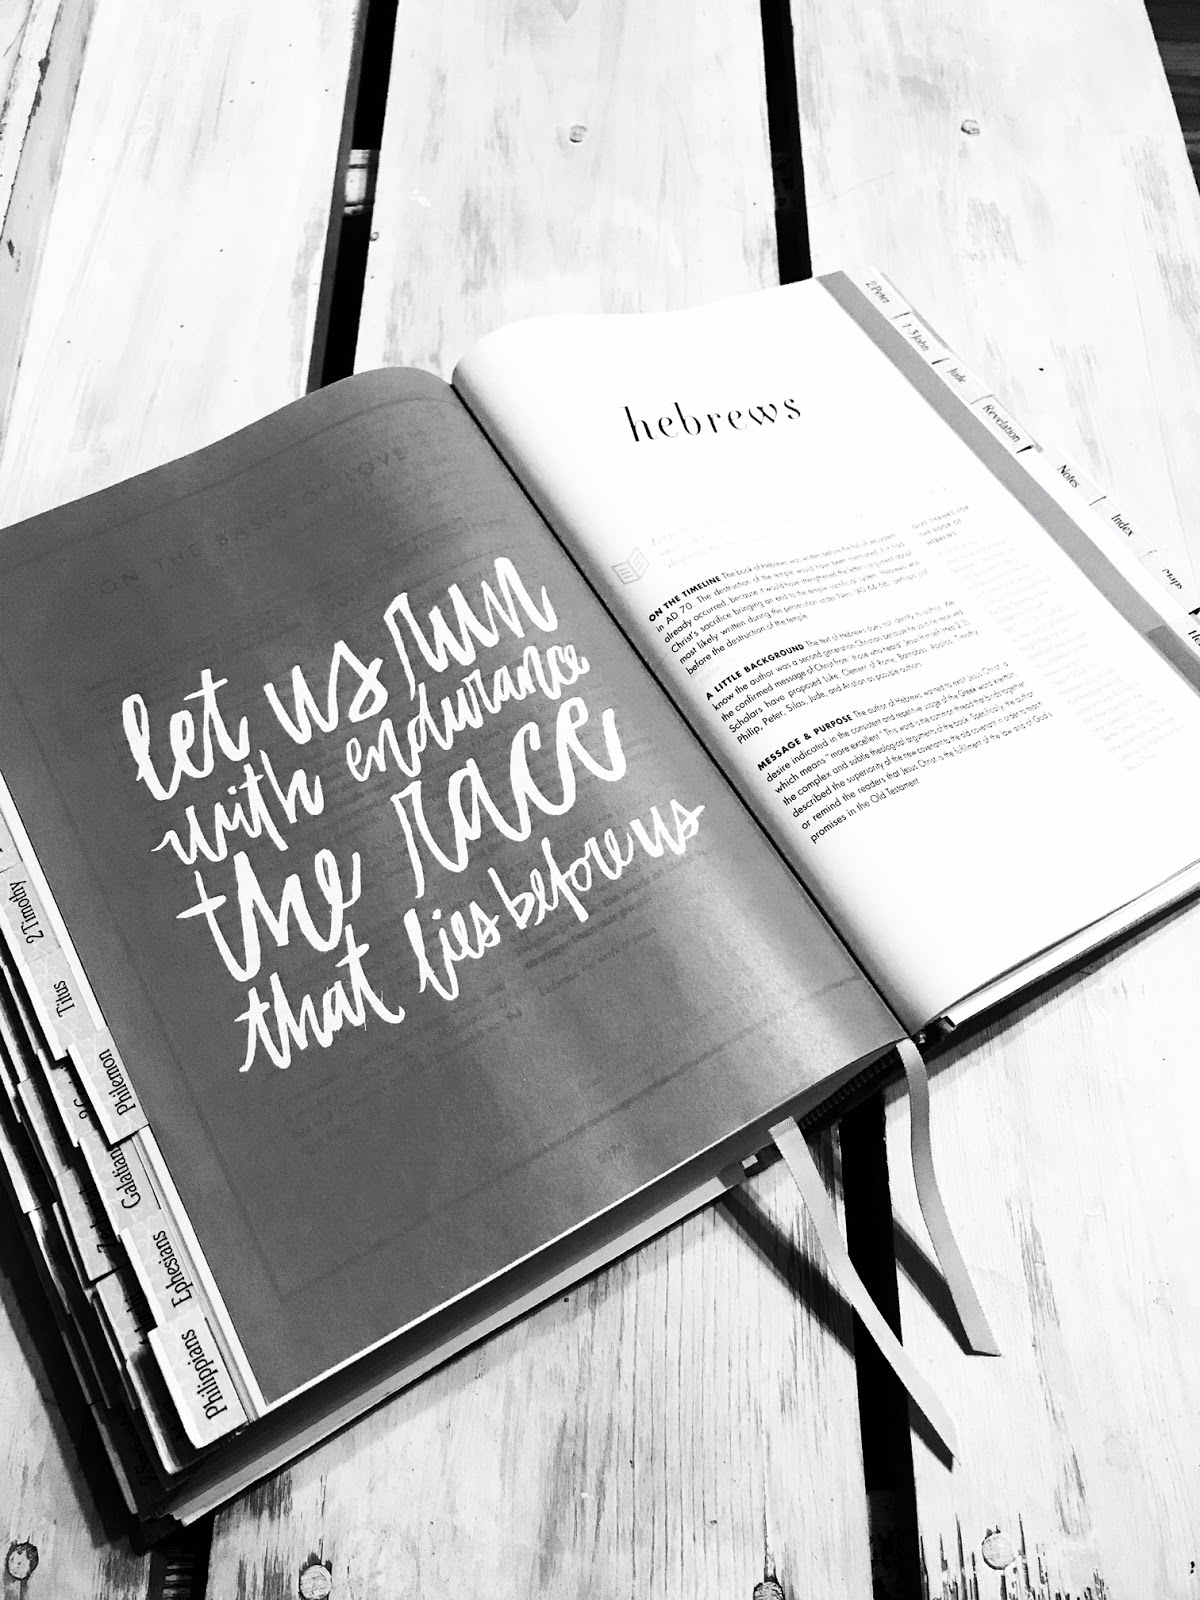 let us run
with endurance
the race
that lies before us
hebrews
GIVE THANKS FOR
THE BOOK OF
HEBREWS
ON THE TIMELINE The book of Hebrews was written before the fall of Jerusalem
in AD 70. The destruction of the temple would have been mentioned if it had
already occurred, because it would have strengthened the letter's argument about
Christ's sacrifice bringing an end to the temple sacrificial system. Hebrews was
most likely written during the persecution under Nero (AD 64-68), perhaps just
before the destruction of the temple.
A LITTLE BACKGROUND The text of Hebrews does not identify its author. We
know the author was a second generation Christian because he said he received
the confirmed message of Christ from "those who heard" Jesus himself (Heb 2:3).
Scholars have proposed Luke, Clement of Rome, Barnabas, Apollos, Timothy,
Philip, Peter, Silas, Jude, and Aristion as possible authors.
MESSAGE & PURPOSE The author of Hebrews wanted to exalt Jesus Christ, a
desire indicated in the consistent and repetitive usage of the Greek word kreitton,
which means "more excellent." This word is the common thread that binds together
the complex and subtle theological arguments of the book. Specifically, the author
described the superiority of the new covenant to the old covenant in order to teach
or remind the readers that Jesus Christ is the fulfillment of the law and of God's
promises in the Old Testament.
2 Peter
1-3 John
Jude
Revelation
Notes
Index
Maps
2 Timothy
Titus
Philemon
Galatians
Ephesians
Philippians